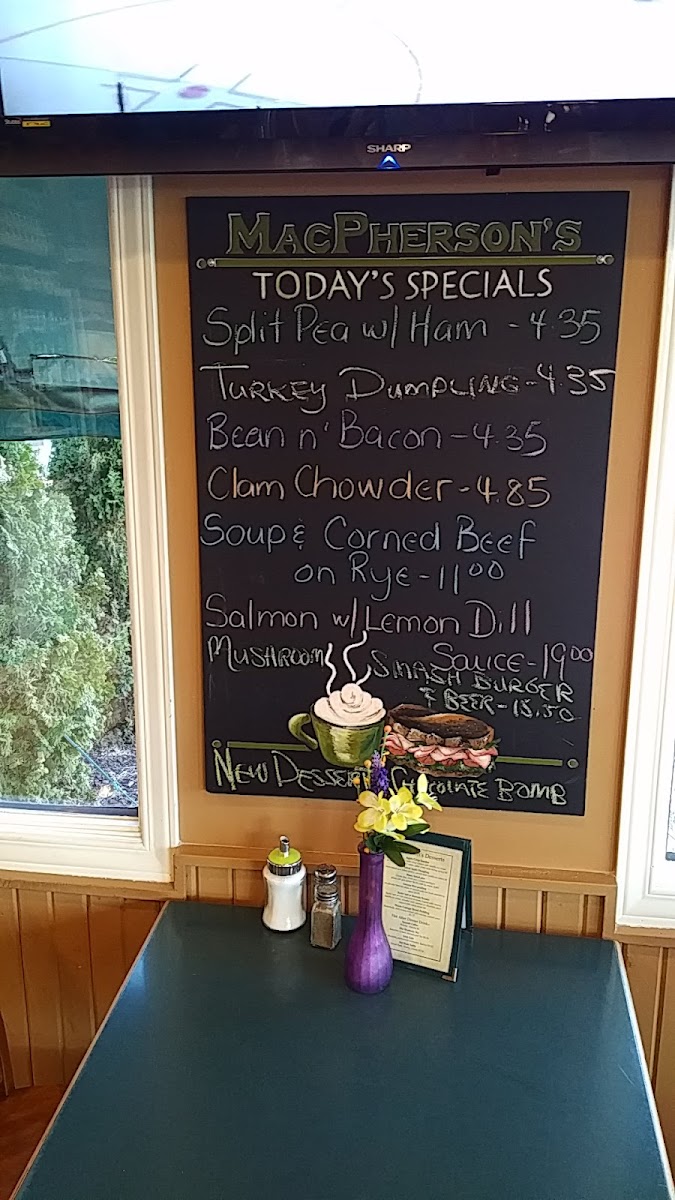 SHARP
MACPHERSON'S
TODAY'S SPECIALS
Split Pea w/ Ham - 4.35
TURKEY DUMPLING - 4.35
Bean n' Bacon - 4.35
Clam Chowder - 4.85
Soup & Corned Beef
on Rye - 11.00
Salmon w/ Lemon Dill
Sauce - 19.00
MUSHROOM SMASH BURGER
& BEER - 15.50
NEW DESSERT CHOCOLATE BOMB
Desserts